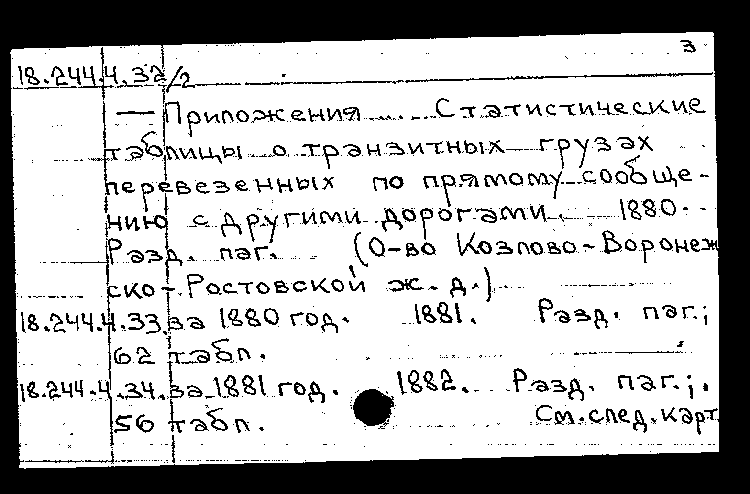 3
18.244.4.32/2
— Приложения ... Статистические
таблицы о транзитных грузах
перевезенных по прямому сообще-
нию с другими дорогами. 1880.
Разд. паг. (О-во Козлово-Воронеж
ско-Ростовской ж. д.)
18.244.4.33. за 1880 год. 1881. Разд. паг.;
62 табл.
18.244.4.34. за 1881 год. 1882. Разд. паг.;
56 табл. См. след. карт